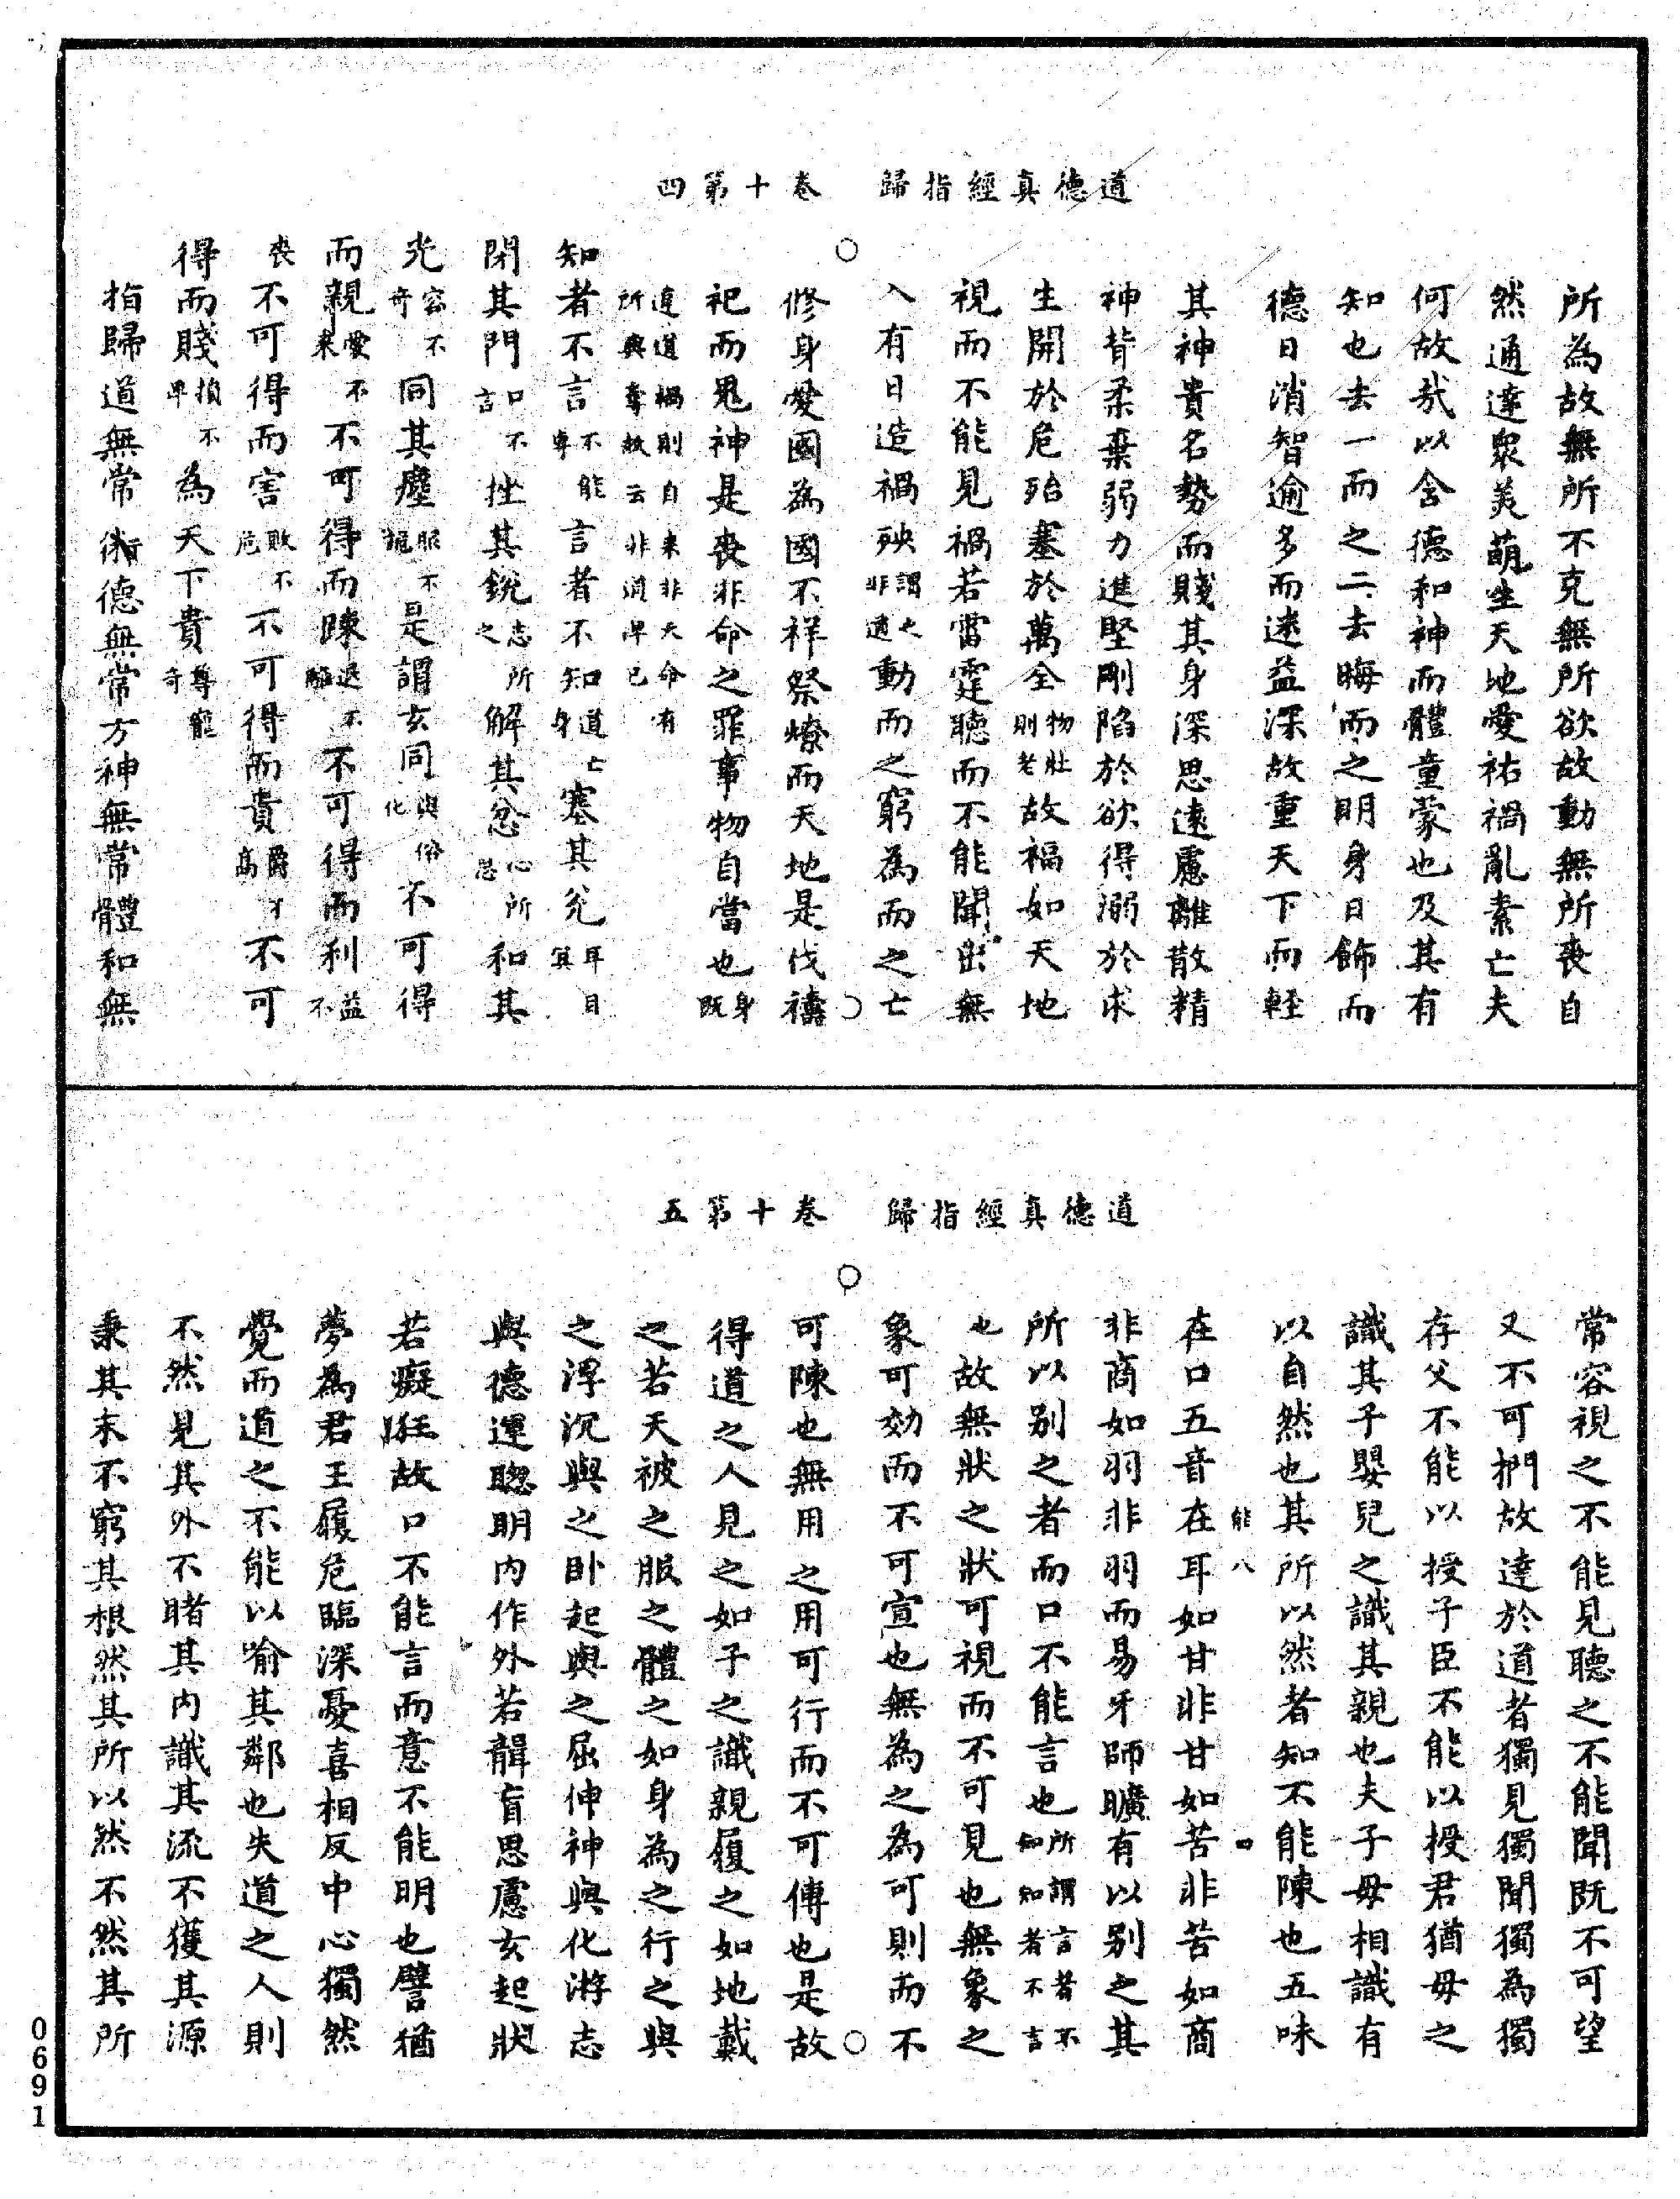 道德真經指歸 卷十第四
所為故無所不克無所欲故動無所喪自
然通達衆美萌生天地愛祐禍亂素亡夫
何故哉以含德和神而體童蒙也及其有
知也去一而之二去晦而之明身日飾而
德日消智逾多而迷益深故重天下而輕
其神貴名勢而賤其身深思遠慮離散精
神背柔棄弱力進堅剛陷於欲得溺於求
生開於危殆塞於萬全物壯則老故福如天地
視而不能見禍若雷霆聽而不能聞出無
入有日造禍殃謂之非適動而之窮為而之亡
修身愛國為國不祥祭燎而天地是伐禱
祀而鬼神是喪非命之罪事物自當也身既
違道禍則自來非天命有所與奪故云非道早已
知者不言不能專言者不知知道亡身塞其兊耳目冥
閉其門口不言挫其銳志所之解其忿心所思和其
光容不奇同其塵服不揓是謂玄同與俗化不可得
而親愛不來不可得而踈退不離不可得而利益不
喪不可得而害敗不危不可得而貴爵不高不可
得而賤損不卑為天下貴尊寵奇
指歸道無常術德無常方神無常體和無
道德真經指歸 卷十第五
常容視之不能見聽之不能聞既不可望
又不可捫故達於道者獨見獨聞獨為獨
存父不能以授子臣不能以授君猶母之
識其子嬰兒之識其親也夫子母相識有
以自然也其所以然者知不能陳也五味
能八 口
在口五音在耳如甘非甘如苦非苦如商
非商如羽非羽而易牙師曠有以別之其
所以別之者而口不能言也所謂言者不知知者不言
也故無狀之狀可視而不可見也無象之
象可効而不可宣也無為之為可則而不
可陳也無用之用可行而不可傳也是故
得道之人見之如子之識親履之如地戴
之若天被之服之體之如身為之行之與
之浮沉與之卧起與之屈伸神與化游志
與德運聰明內作外若聾盲思慮玄起狀
若癡狂故口不能言而意不能明也譬猶
夢為君王履危臨深憂喜相反中心獨然
覺而道之不能以喻其鄰也失道之人則
不然見其外不睹其內識其流不獲其源
秉其末不窮其根然其所以然不然其所
0691